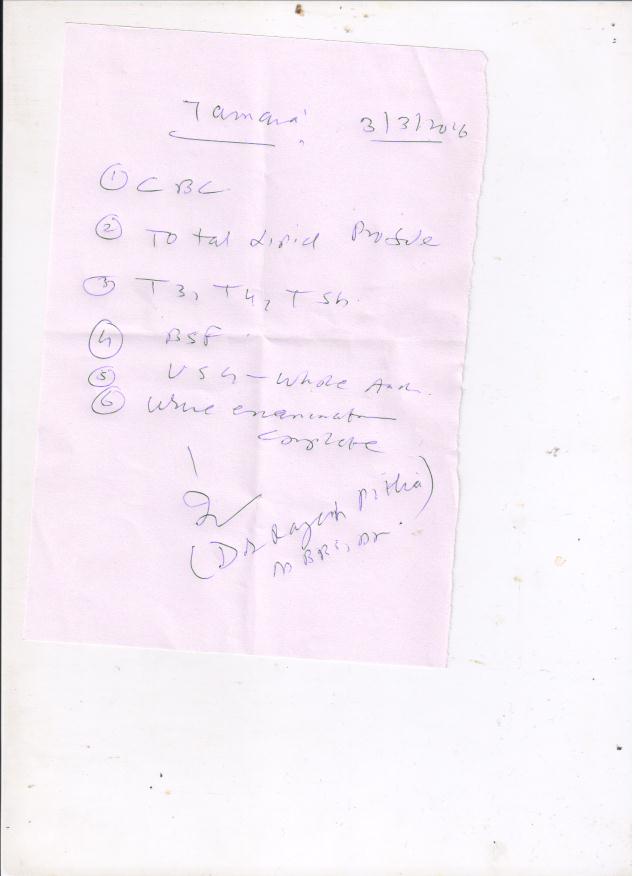 Tamara 3/3/2016
① CBC
② Total Lipid Profile
③ T3, T4, TSh.
④ BSF
⑤ USG - Whole
⑥ Urine examination
Complete
(Dr Rajesh
MBBS,